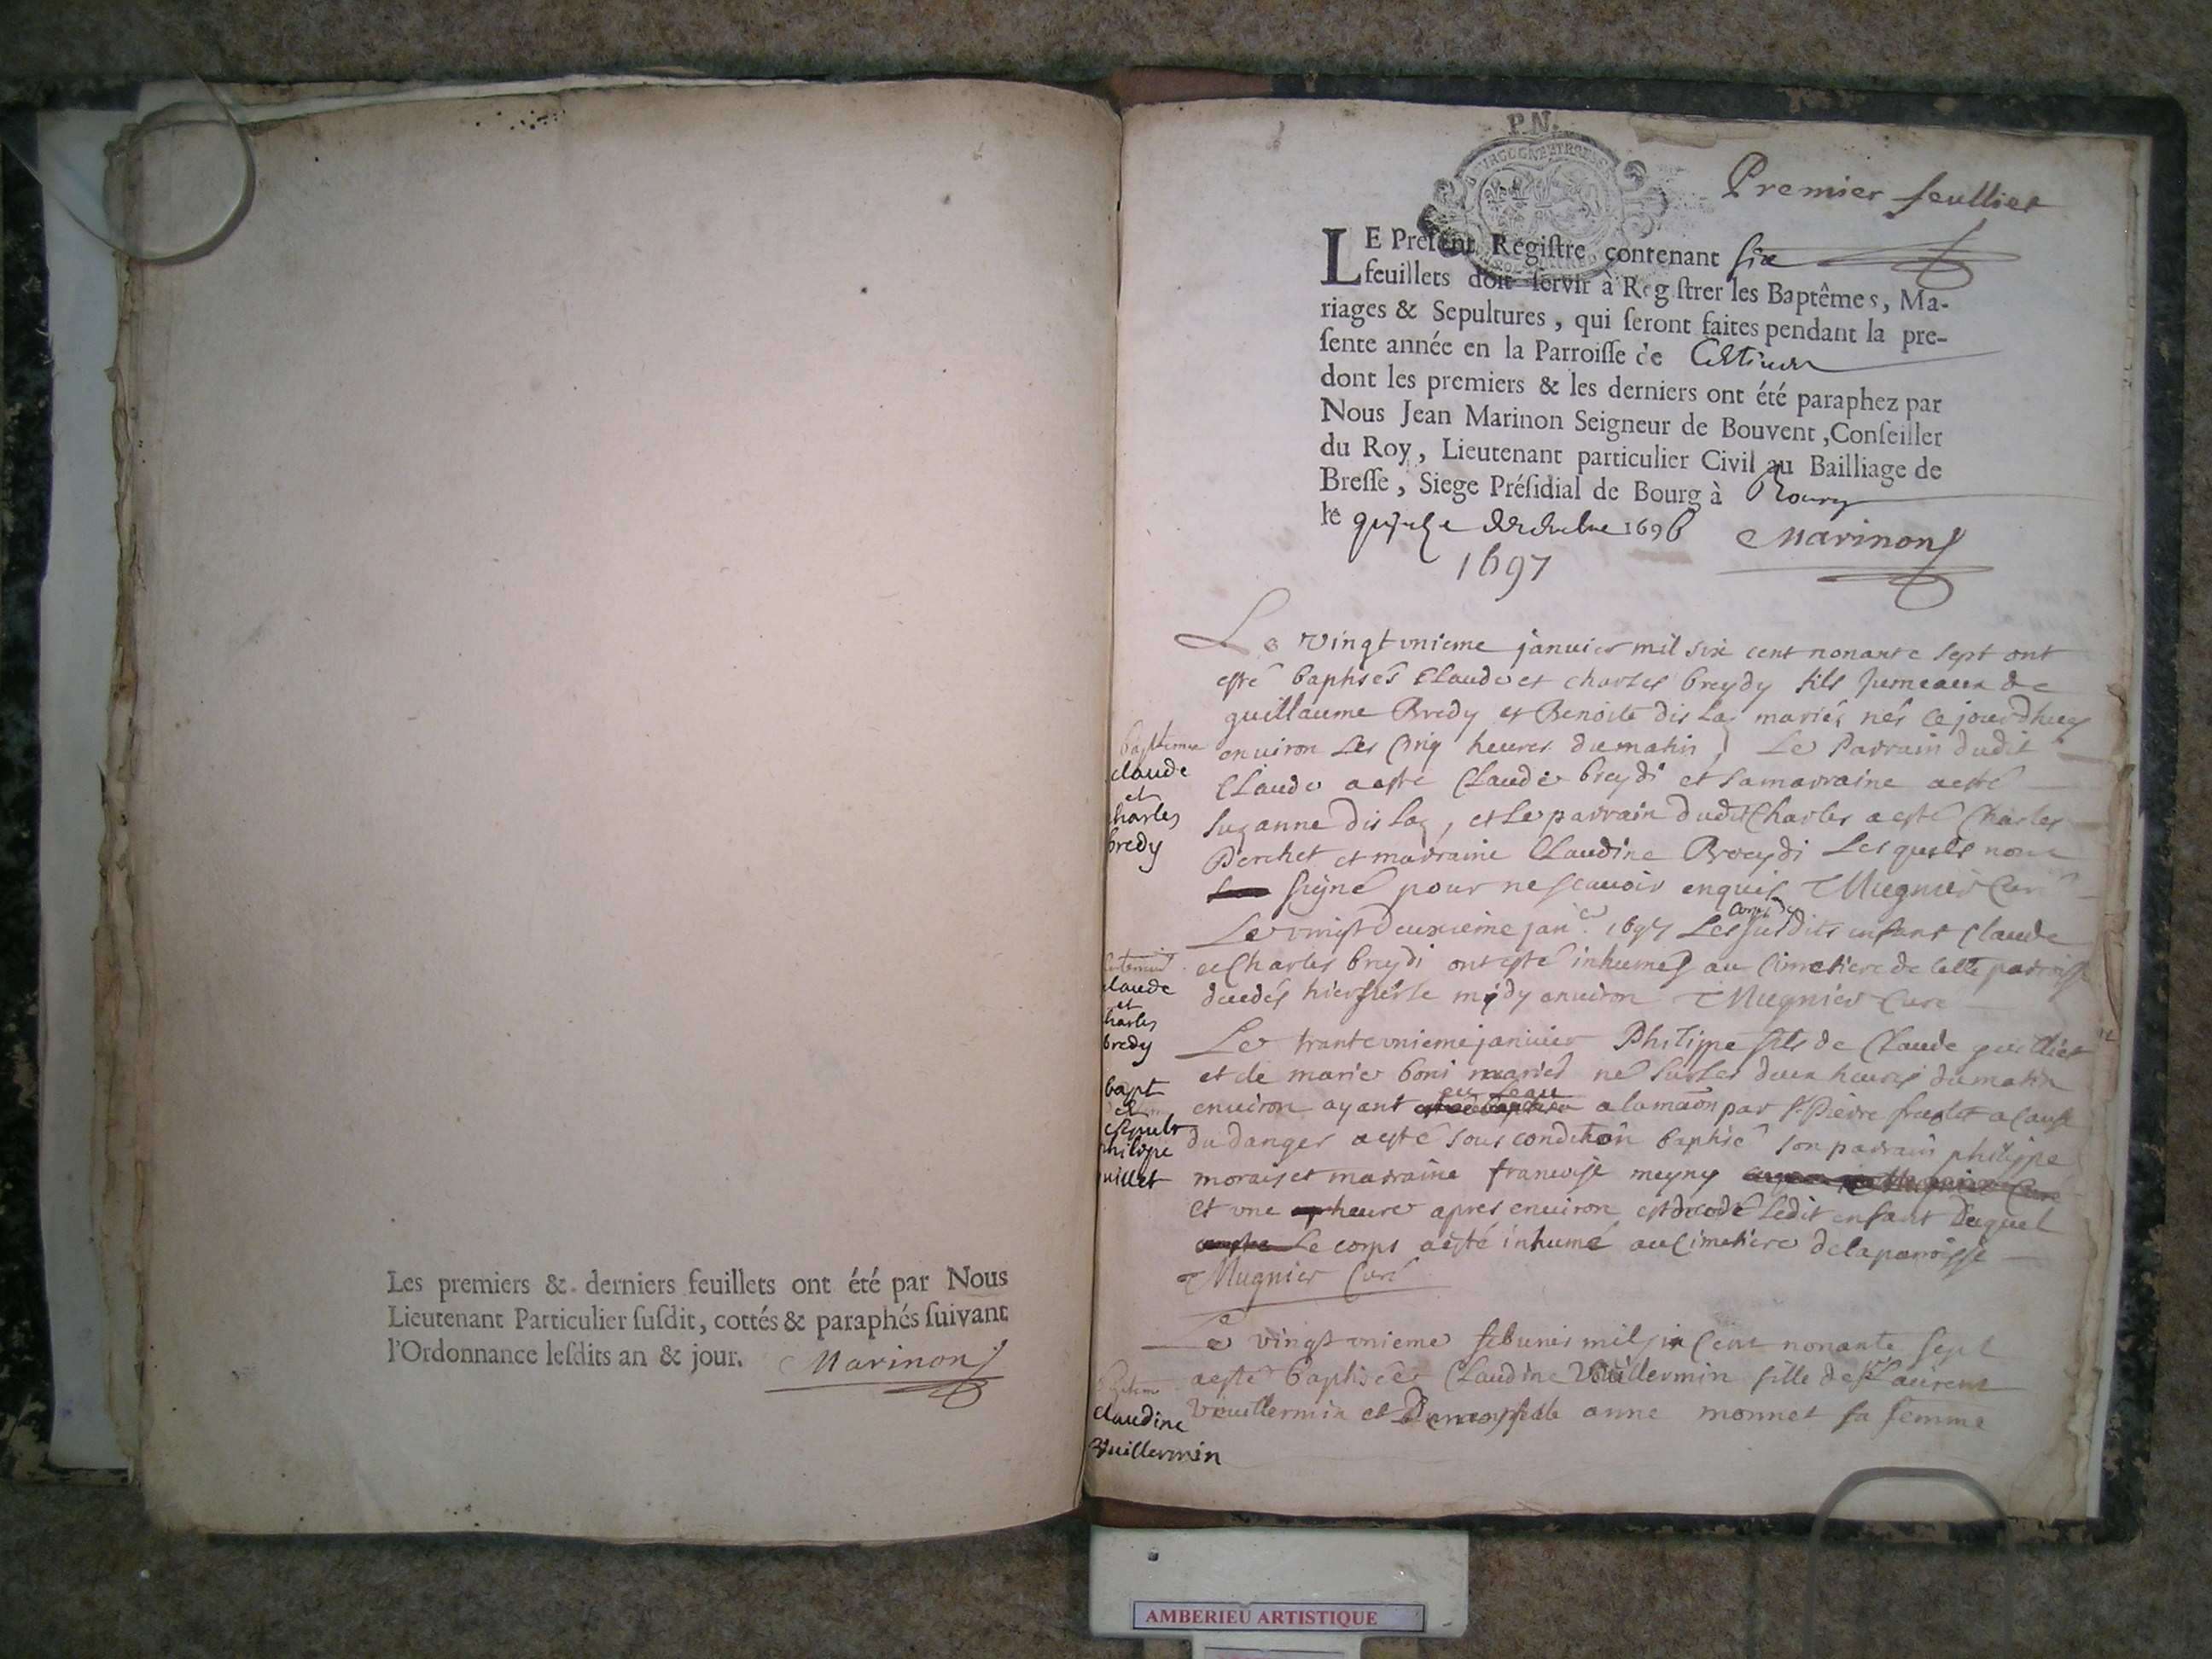 Les premiers & derniers feuillets ont été par Nous
Lieutenant Particulier ſuſdit, cottés & paraphés ſuivant
l'Ordonnance leſdits an & jour. Marinon
P.N.
Premier feulliet
LE Preſent Regiſtre contenant six
feuillets doit ſervir à Reg ſtrer les Baptêmes, Ma-
riages & Sepultures, qui ſeront faites pendant la pre-
ſente année en la Parroiſſe de
dont les premiers & les derniers ont été paraphez par
Nous Jean Marinon Seigneur de Bouvent, Conſeiller
du Roy, Lieutenant particulier Civil au Bailliage de
Breſſe, Siege Préſidial de Bourg à Bourg
le 1696 Marinon
1697
Le vingt unieme janvier mil six cent nonante sept ont
esté baptisés Claude et charles breydy fils Jumeaux de
guillaume Bredy et Benoite mariés nés ce jourdhuy
environ les cinq heures du matin, Le Parrain dudit
Claude a esté Claude breydi et sa marraine a esté
Suzanne, et Le parrain dudit Charles a esté Charles
Perchet et marraine Claudine Breydi Lesquels nont
signé pour ne scavoir enquis Mugnier Curé
baptime
claude
et
charles
bredy
Le vingt deuxieme janr 1697 Les corps des susdits enfant Claude
et Charles breydi ont esté inhumés au Cimetiere de cette parroisse
decedés hier sur le midy environ Mugnier Curé
claude
et
charles
bredy
Le trante unieme janvier Philippe fils de Claude guilliet
et de marie boni mariés né sur les deux heures du matin
environ ayant eu leau a la maon par Sr Pierre a cause
du danger a esté sous condition baptisé son parrain philippe
morais et marraine francoise meyny
et une heure apres environ est decedé ledit enfant duquel
Le corps a esté inhumé au Cimetiere de la parroisse
Mugnier Curé
bapt
et
sepult
philipe
guillet
Le vingt unieme febvrier mil six cent nonante sept
a esté baptisée Claudine Vuillermin fille de Sr Laurent
Vuillermin et De anne monnet sa femme
claudine
Vuillermin
AMBERIEU ARTISTIQUE